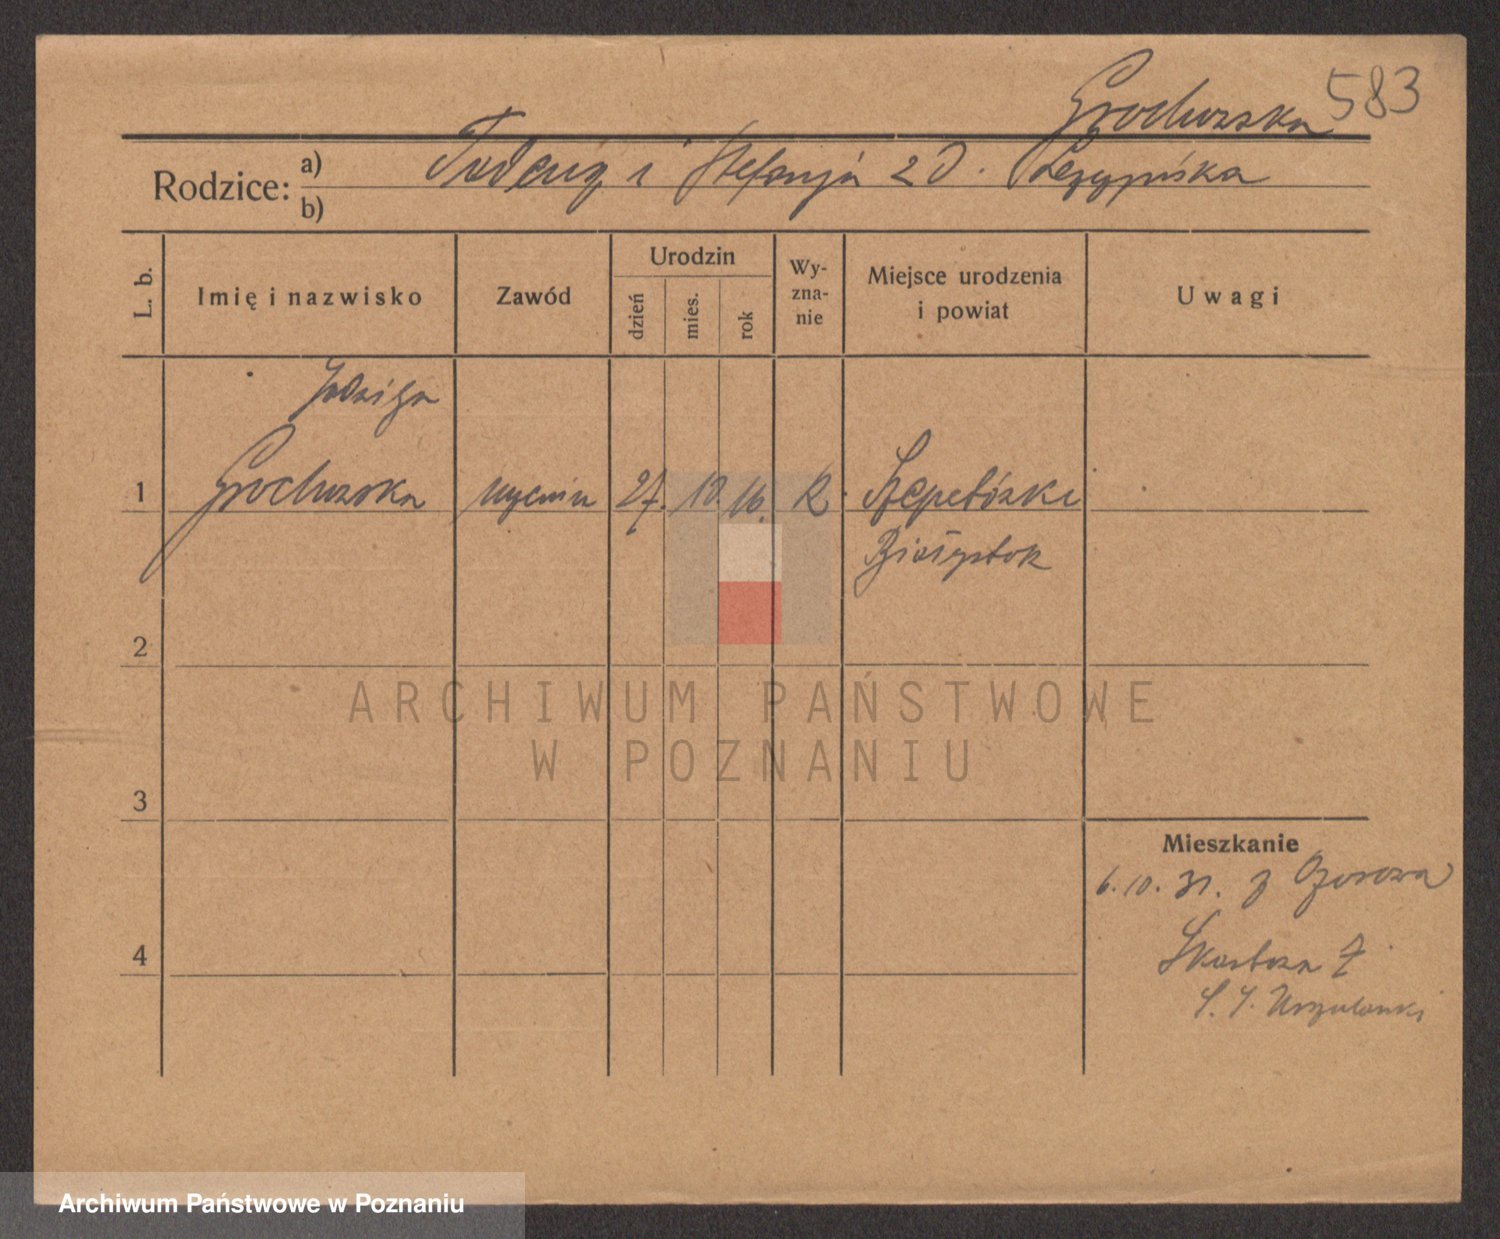 583
Grochowska
Rodzice: a) b)
Tadeusz i Stefanja z D.
L. b.
Imię i nazwisko
Zawód
Urodzin
dzień
mies.
rok
Wy-
zna-
nie
Miejsce urodzenia
i powiat
Uwagi
Jadwiga
1 Grochowska uczenica 27. 10 16. R.
Białystok
2
3
4
Mieszkanie
6.10.31. z Ozorowa
Skarbowa
S. S. Urszulanki
ARCHIWUM PAŃSTWOWE
W POZNANIU
Archiwum Państwowe w Poznaniu